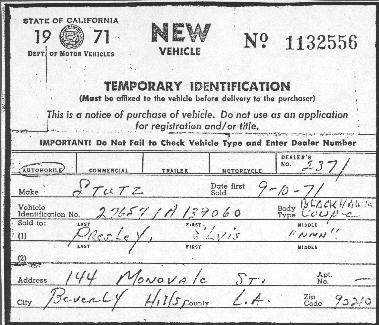 STATE OF CALIFORNIA
1971
DEPT. OF MOTOR VEHICLES
NEW
VEHICLE
No 1132556
TEMPORARY IDENTIFICATION
(Must be affixed to the vehicle before delivery to the purchaser)
This is a notice of purchase of vehicle. Do not use as an application
for registration and/or title.
IMPORTANT! Do Not Fail to Check Vehicle Type and Enter Dealer Number
AUTOMOBILE COMMERCIAL TRAILER MOTORCYCLE DEALER'S NO. 2371
Make STUTZ Date first Sold 9-10-71
Vehicle Identification No. 276541A139060 Body Type BLACKHAWK Coupe
Sold to: LAST FIRST MIDDLE
(1) Presley, Elvis "NMN"
LAST FIRST MIDDLE
(2)
Address 144 Monovale St. Apt. No. —
City Beverly Hills County L.A. Zip Code 90210